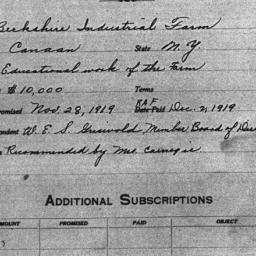 Berkshire Industrial Farm
Canaan State N.Y.
Educational work of the Farm
$10,000 Terms
Promised Nov. 28, 1919 R A F Date Paid Dec. 2, 1919
W. E. S. Griswold Member Board of
Recommended by Mrs Carnegie
ADDITIONAL SUBSCRIPTIONS
AMOUNT PROMISED PAID OBJECT